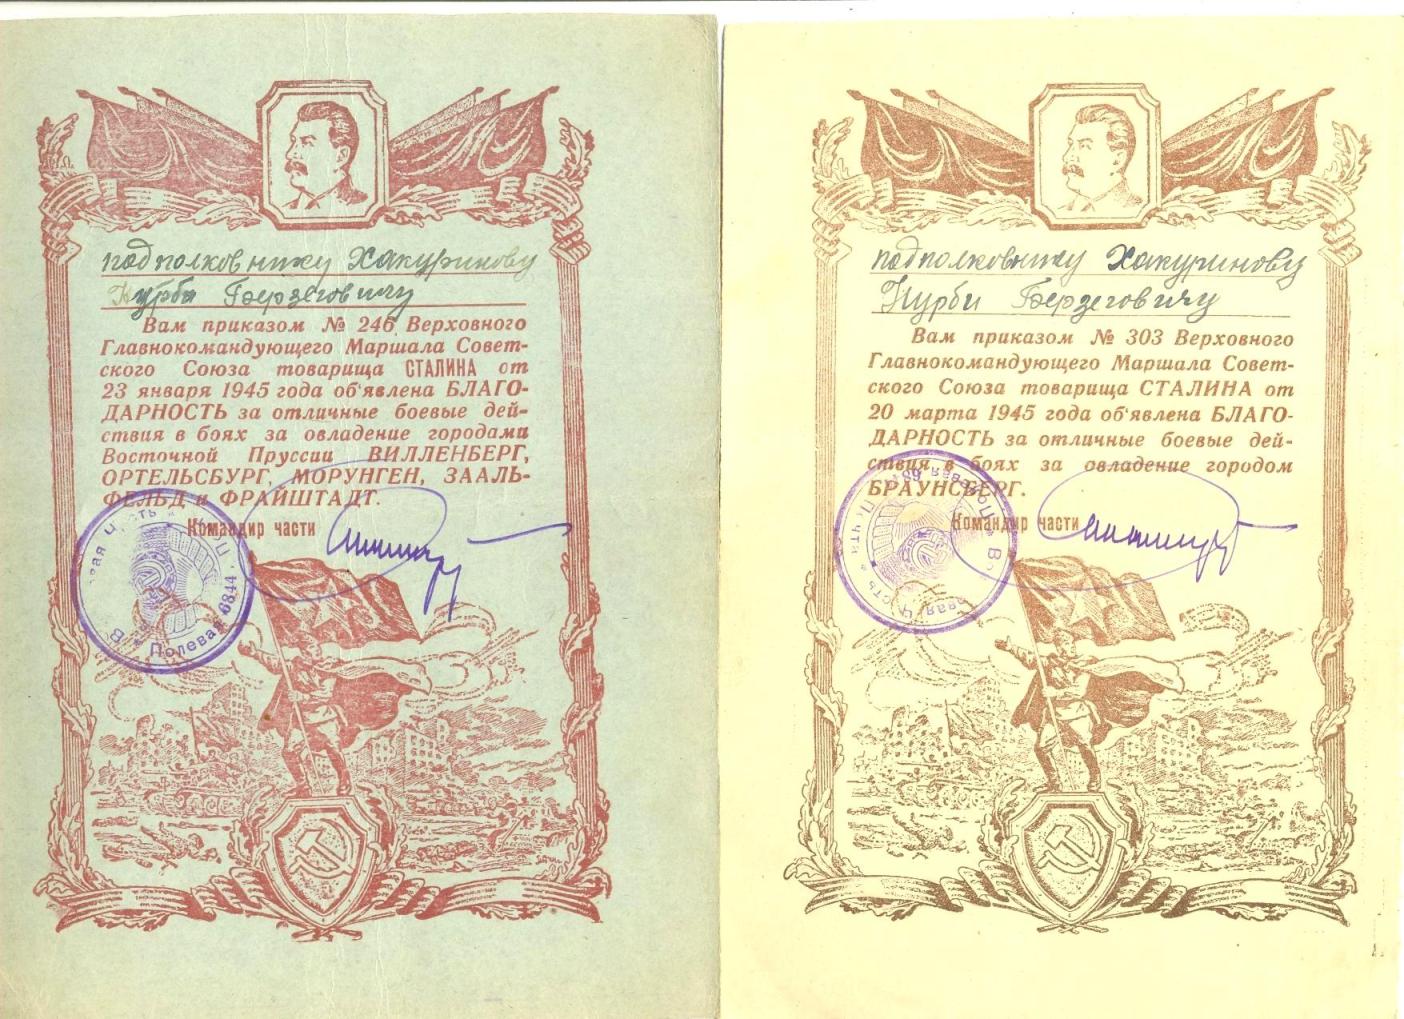 подполковнику Хакуринову
Нурби Берзеговичу
Вам приказом № 246 Верховного
Главнокомандующего Маршала Совет-
ского Союза товарища СТАЛИНА от
23 января 1945 года об'явлена БЛАГО-
ДАРНОСТЬ за отличные боевые дей-
ствия в боях за овладение городами
Восточной Пруссии ВИЛЛЕНБЕРГ,
ОРТЕЛЬСБУРГ, МОРУНГЕН, ЗААЛЬ-
ФЕЛЬД и ФРАЙШТАДТ.
Командир части
Полевая
6844
подполковнику Хакуринову
Нурби Берзеговичу
Вам приказом № 303 Верховного
Главнокомандующего Маршала Совет-
ского Союза товарища СТАЛИНА от
20 марта 1945 года об'явлена БЛАГО-
ДАРНОСТЬ за отличные боевые дей-
ствия в боях за овладение городом
БРАУНСБЕРГ.
Командир части